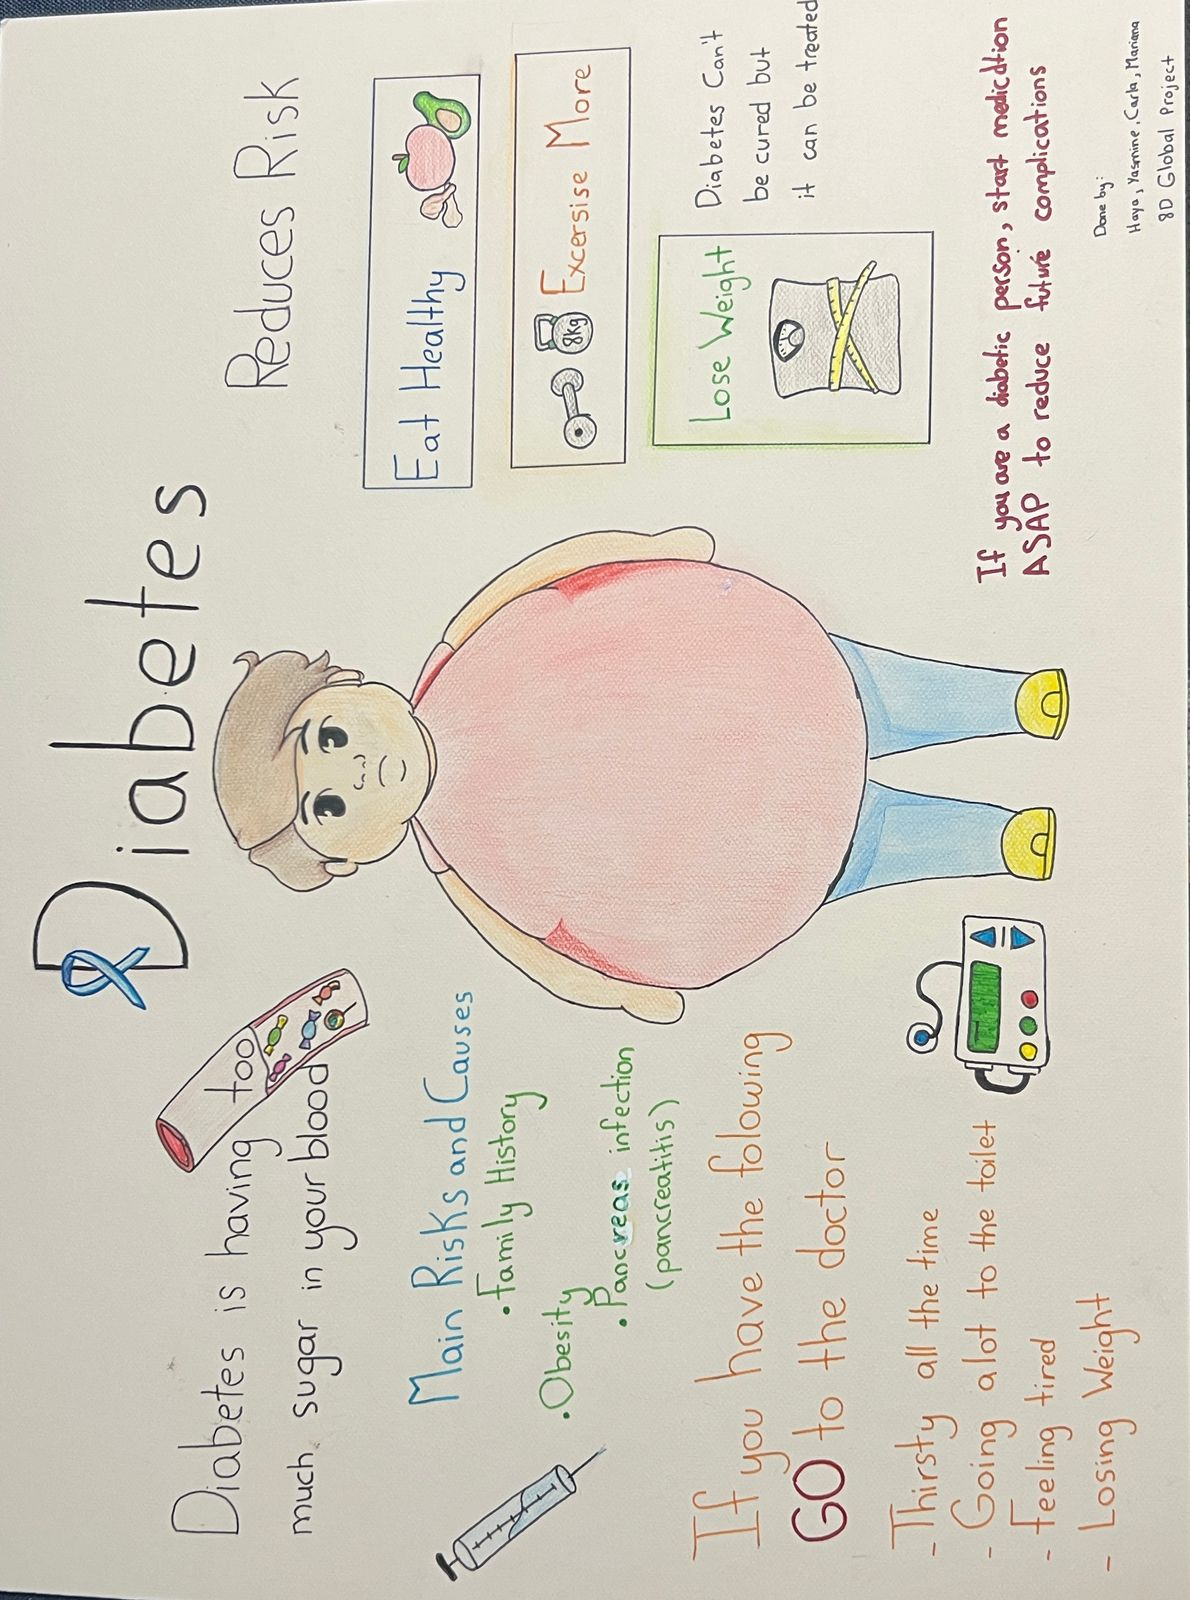 Diabetes
Diabetes is having too
much sugar in your blood
Main Risks and Causes
• Family History
• Obesity
• Pancreas infection
(pancreatitis)
If you have the folowing
GO to the doctor
- Thirsty all the time
- Going alot to the toilet
- Feeling tired
- Losing Weight
Reduces Risk
Eat Healthy
8kg
Excersise More
Lose Weight
Diabetes Can't
be cured but
it can be treated
If you are a diabetic person, start medication
ASAP to reduce future complications
Done by:
Haya, Yasmine, Carla, Mariana
8D Global Project